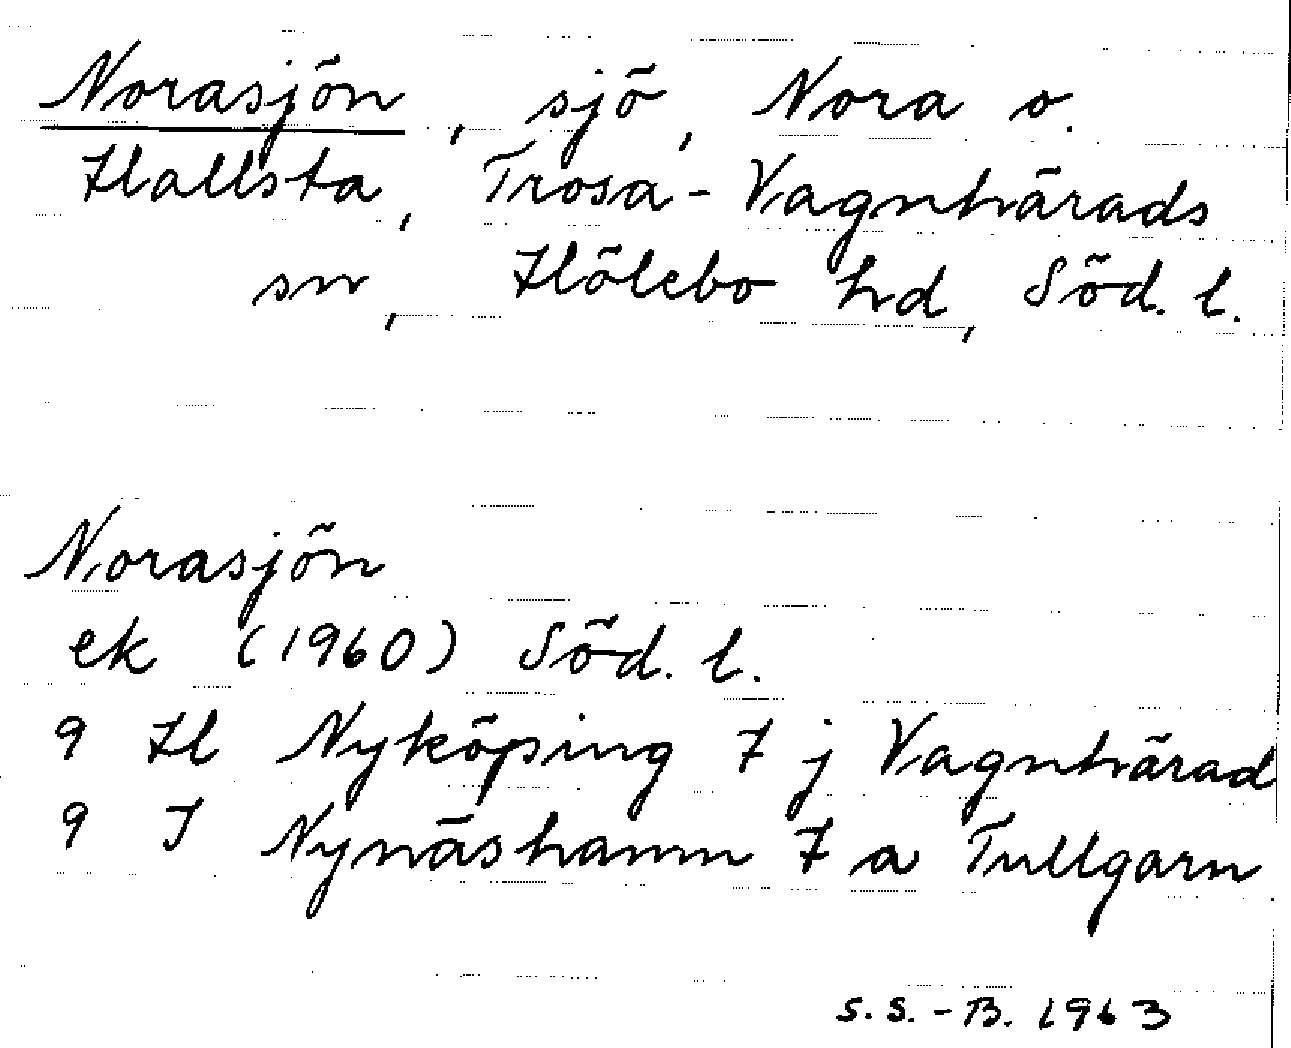 Norasjön, sjö, Nora o.
Hallsta, Trosa-Vagnhärads
sn, Hölebo hd, Söd. l.
Norasjön
ek (1960) Söd. l.
9 H Nyköping 7 j Vagnhärad
9 I Nynäshamn 7 a Tullgarn
S.S.-B. 1963